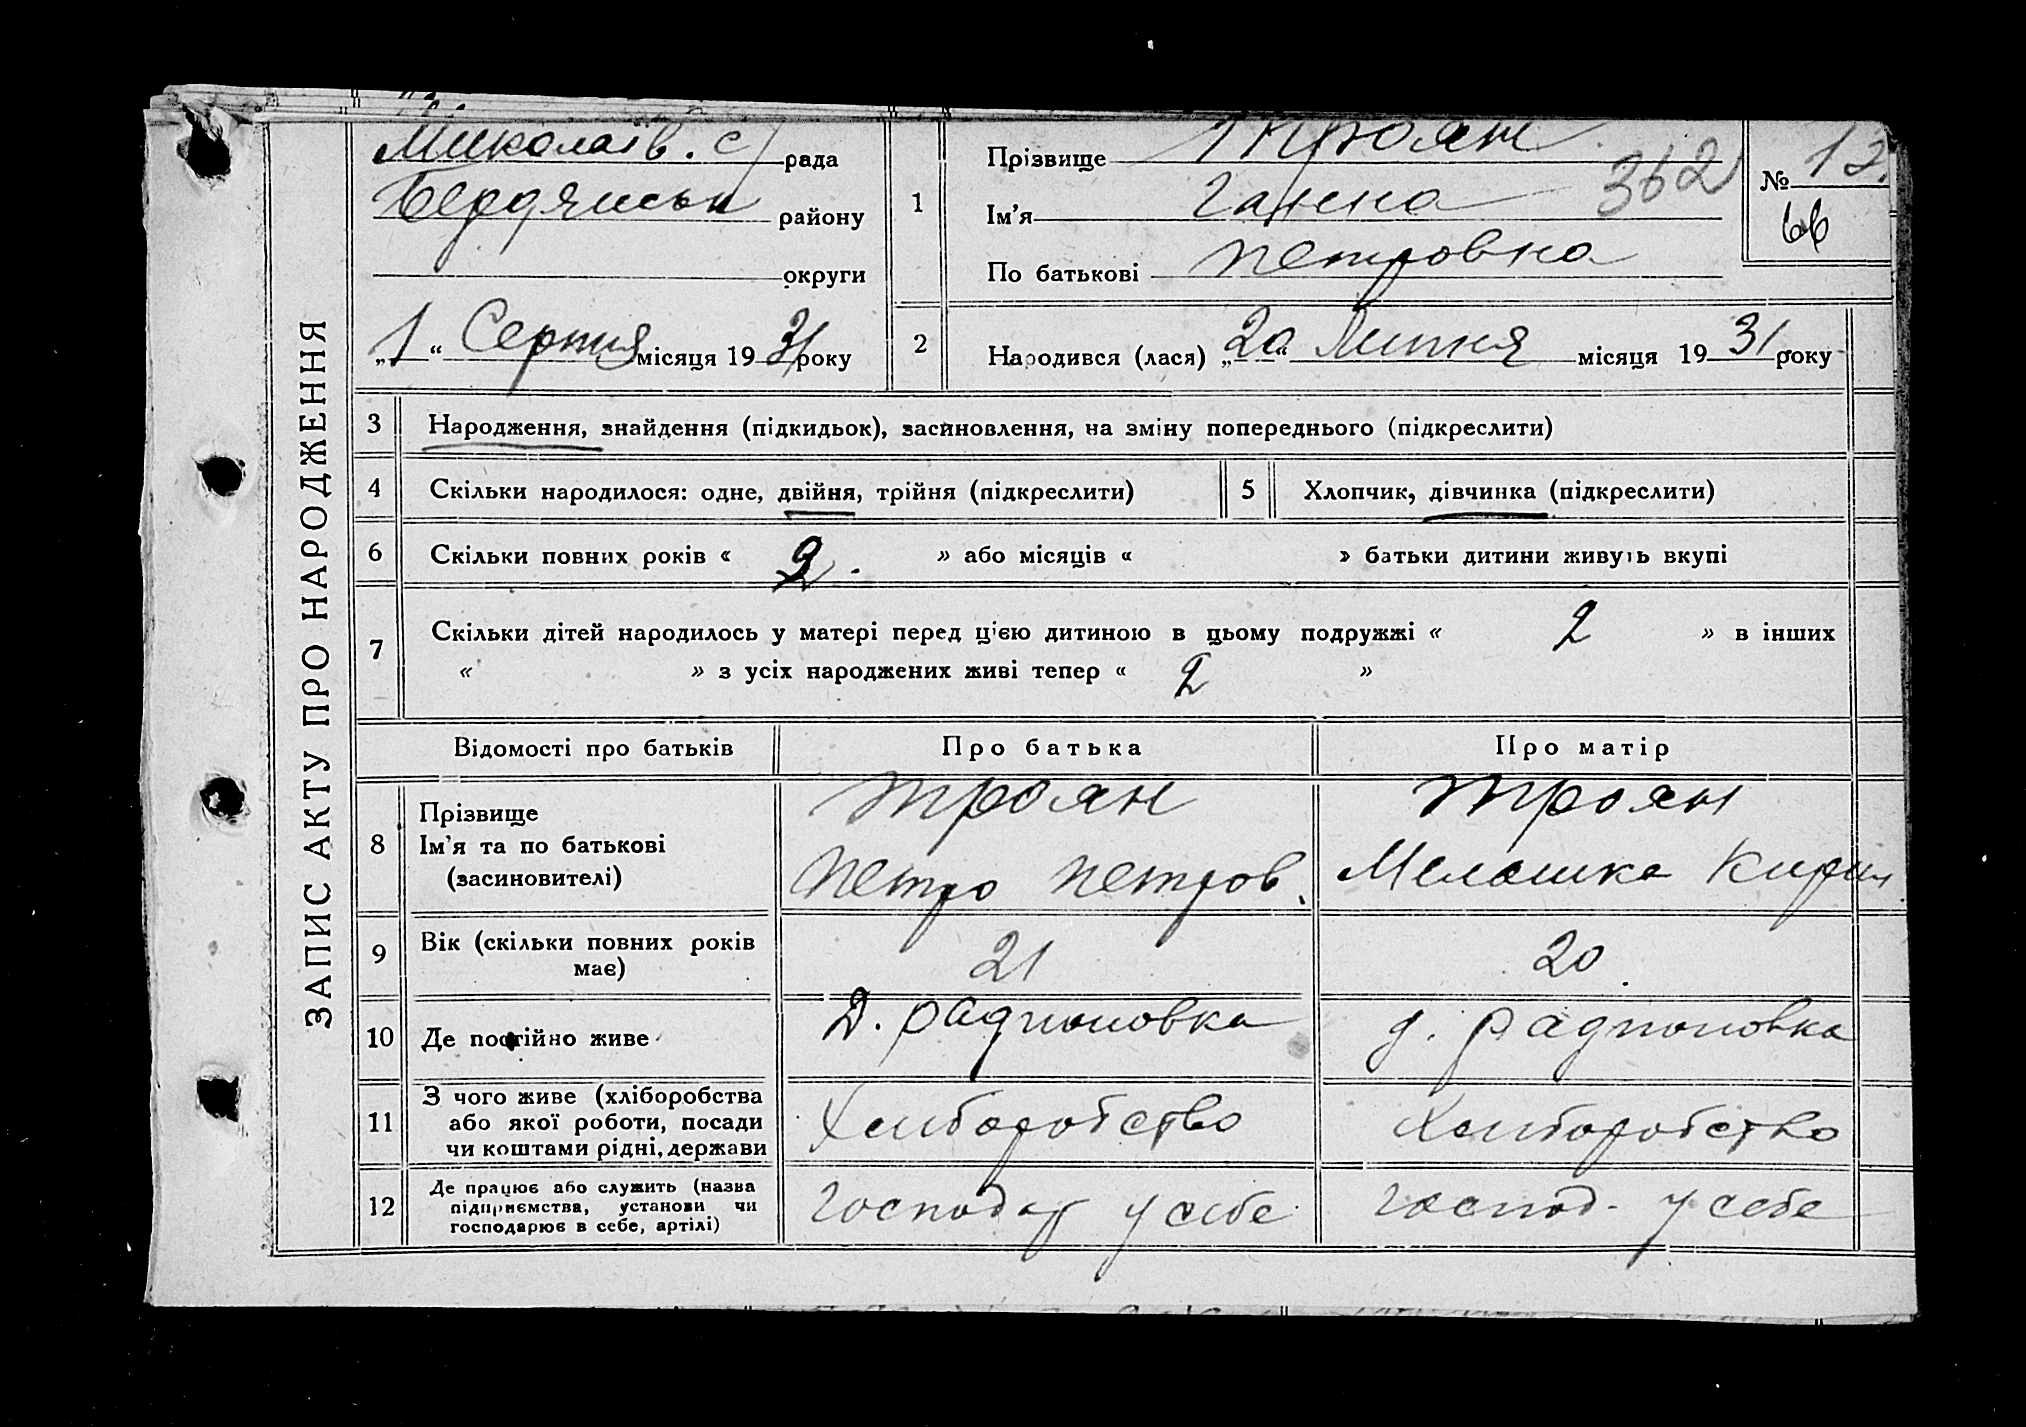 ЗАПИС АКТУ ПРО НАРОДЖЕННЯ
Миколаїв. с/рада
Бердянськ району
округи
„1“ Серпня місяця 1931 року
1
Прізвище Троян
Ім'я Ганна
По батькові Петровна
362
№ 12
66
2
Народився (лася) „20“ Липня місяця 1931 року
3 Народження, знайдення (підкидьок), засиновлення, на зміну попереднього (підкреслити)
4 Скільки народилося: одне, двійня, трійня (підкреслити)
5 Хлопчик, дівчинка (підкреслити)
6 Скільки повних років « 2. » або місяців « » батьки дитини живуть вкупі
7 Скільки дітей народилось у матері перед цією дитиною в цьому подружжі « 2 » в інших
« » з усіх народжених живі тепер « 2 »
Відомості про батьків
Про батька
Про матір
8
Прізвище
Ім'я та по батькові
(засиновителі)
Троян
Петро Петров.
Троян
Мелашка Кирил
9
Вік (скільки повних років
має)
21
20
10 Де постійно живе
Д. Радионовка
д. Радионовка
11
З чого живе (хліборобства
або якої роботи, посади
чи коштами рідні, держави
Хлиборобство
Хлиборобство
12
Де працює або служить (назва
підприємства, установи чи
господарює в себе, артілі)
Господар у себе
Господ. у себе